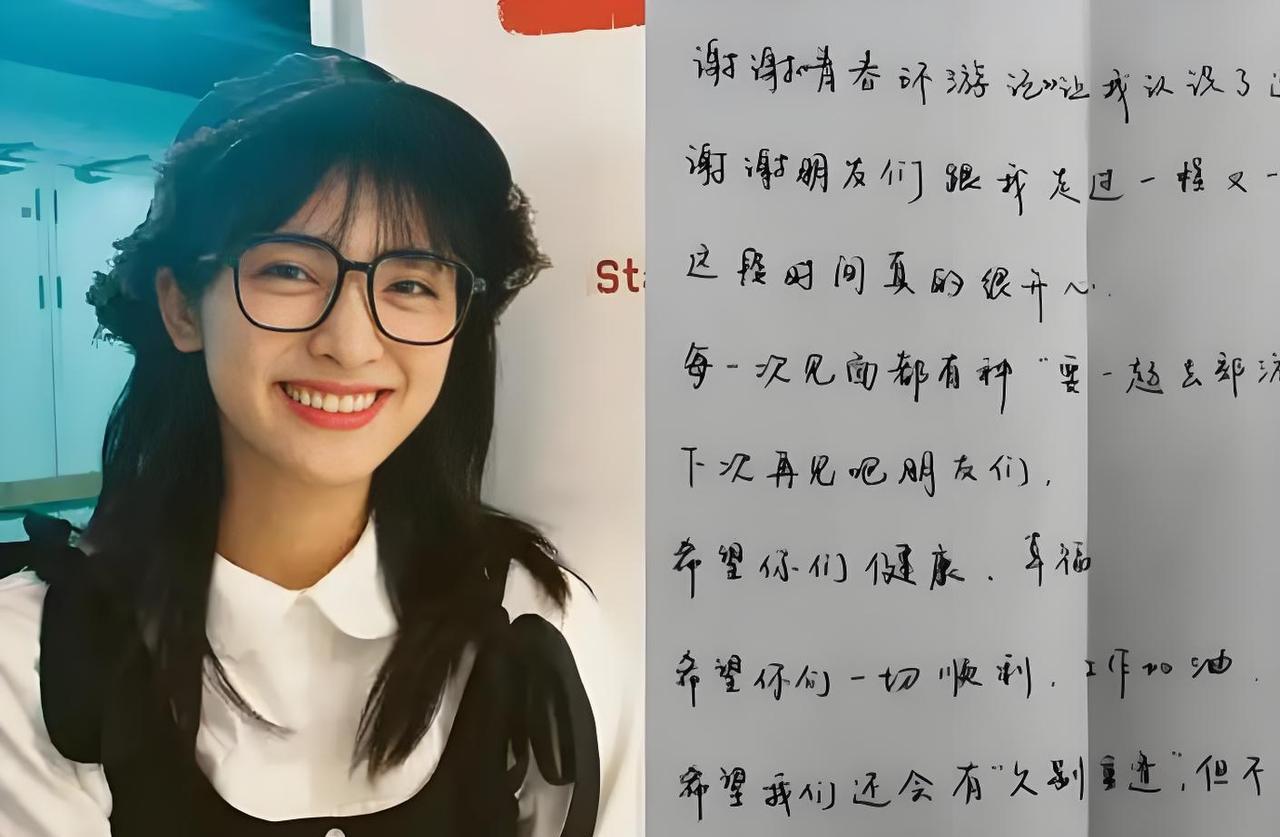 St
谢谢《青春环游记》让我认识了
谢谢朋友们跟我走过一程又一
这段时间真的很开心.
每一次见面都有种“要一起去郊游
下次再见吧朋友们,
希望你们健康、幸福
希望你们一切顺利、工作加油.
希望我们还会有“久别重逢”,但不